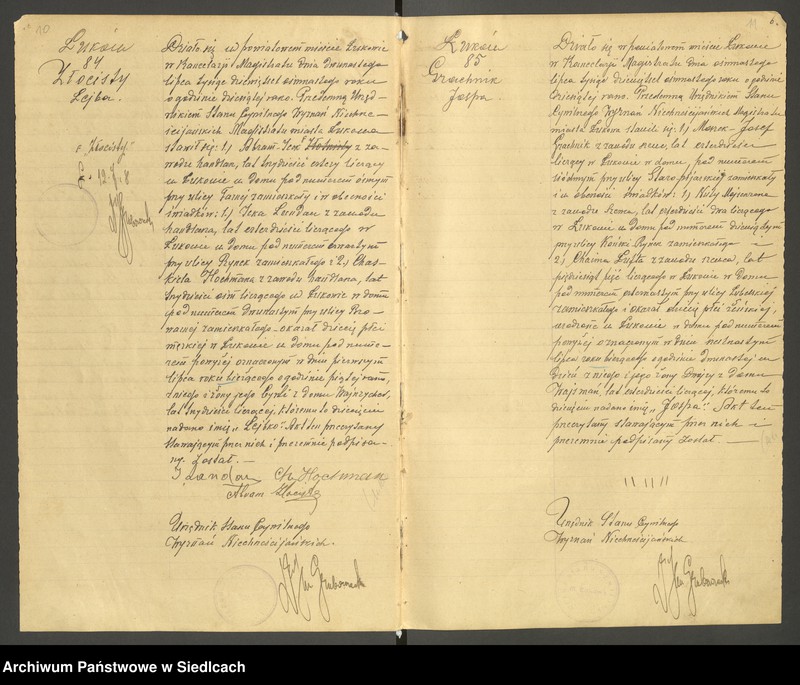 10
Łuków
84
Złocisty
Lejba.
"Złocisty"
12 8
Działo się w powiatowem mieście Łukowie
w Kancelarji Magistratu dnia dwunastego
lipca tysiąc dziewięćset osiemnastego roku
o godzinie dziesiątej rano. Przedemną Urzęd
nikiem Stanu Cywilnego Wyznań Niechrze-
ścijańskich Magistratu miasta Łukowa
stawił się: 1) Abram-Icek Złocisty z za-
wodu handlarz, lat trzydzieści cztery liczący
w Łukowie w domu pod numerem ósmym
przy ulicy zamieszkały i w obecności
świadków: 1) Icka Landau z zawodu
handlarza, lat czterdzieści liczącego w
Łukowie w domu pod numerem czwartym
przy ulicy Rynek zamieszkałego i 2) Chas-
kiela Hochmana z zawodu handlarza, lat
trzydzieści ośm liczącego w Łukowie w domu
pod numerem dwunastym przy ulicy
zamieszkałego – okazał dziecię płci
męzkiej w Łukowie w domu pod nume-
rem powyżej oznaczonym w dniu pierwszym
lipca roku bieżącego o godzinie piątej rano,
z niego i żony jego z domu
lat trzydzieści liczącej, któremu to dziecięciu
nadano imię „Lejbko". Akt ten przeczytany
stawającym przez nich i przezemnie podpisa-
ny został. —
I Landau Ch. Hochman
Abram Złocisty
Urzędnik Stanu Cywilnego
Wyznań Niechrześcijańskich.
11 6.
Łuków
85
Jospa.
Działo się w powiatowem mieście Łukowie
w Kancelarji Magistratu dnia osiemnastego
lipca tysiąc dziewięćset osiemnastego roku o godzinie
dziesiątej rano. Przedemną Urzędnikiem Stanu
Cywilnego Wyznań Niechrześcijańskich Magistratu
miasta Łukowa stawił się: 1) Morek-Josef
z zawodu szewc, lat czterdzieści
liczący w Łukowie w domu pod numerem
siódmym przy ulicy Staro-pijarskiej zamieszkały
i w obecności świadków: 1) Nuty
z zawodu szewca, lat czterdzieści dwa liczącego
w Łukowie w domu pod numerem dziewiątym
przy ulicy Koński Rynek zamieszkałego i
2) Chaima Lufta z zawodu szewca, lat
pięćdziesiąt pięć liczącego w Łukowie w domu
pod numerem czternastym przy ulicy Lubelskiej
zamieszkałego i okazał dziecię płci żeńskiej,
urodzone w Łukowie w domu pod numerem
powyżej oznaczonym w dniu
lipca roku bieżącego o godzinie dwunastej w
dzień z niego i jego żony Dwojry z domu
Wajsman, lat czterdzieści liczącej, któremu to
dziecięciu nadano imię „Jospa". Akt ten
przeczytany stawającym przez nich i
przezemnie podpisany został. —
Urzędnik Stanu Cywilnego
Wyznań Niechrześcijańskich
Archiwum Państwowe w Siedlcach